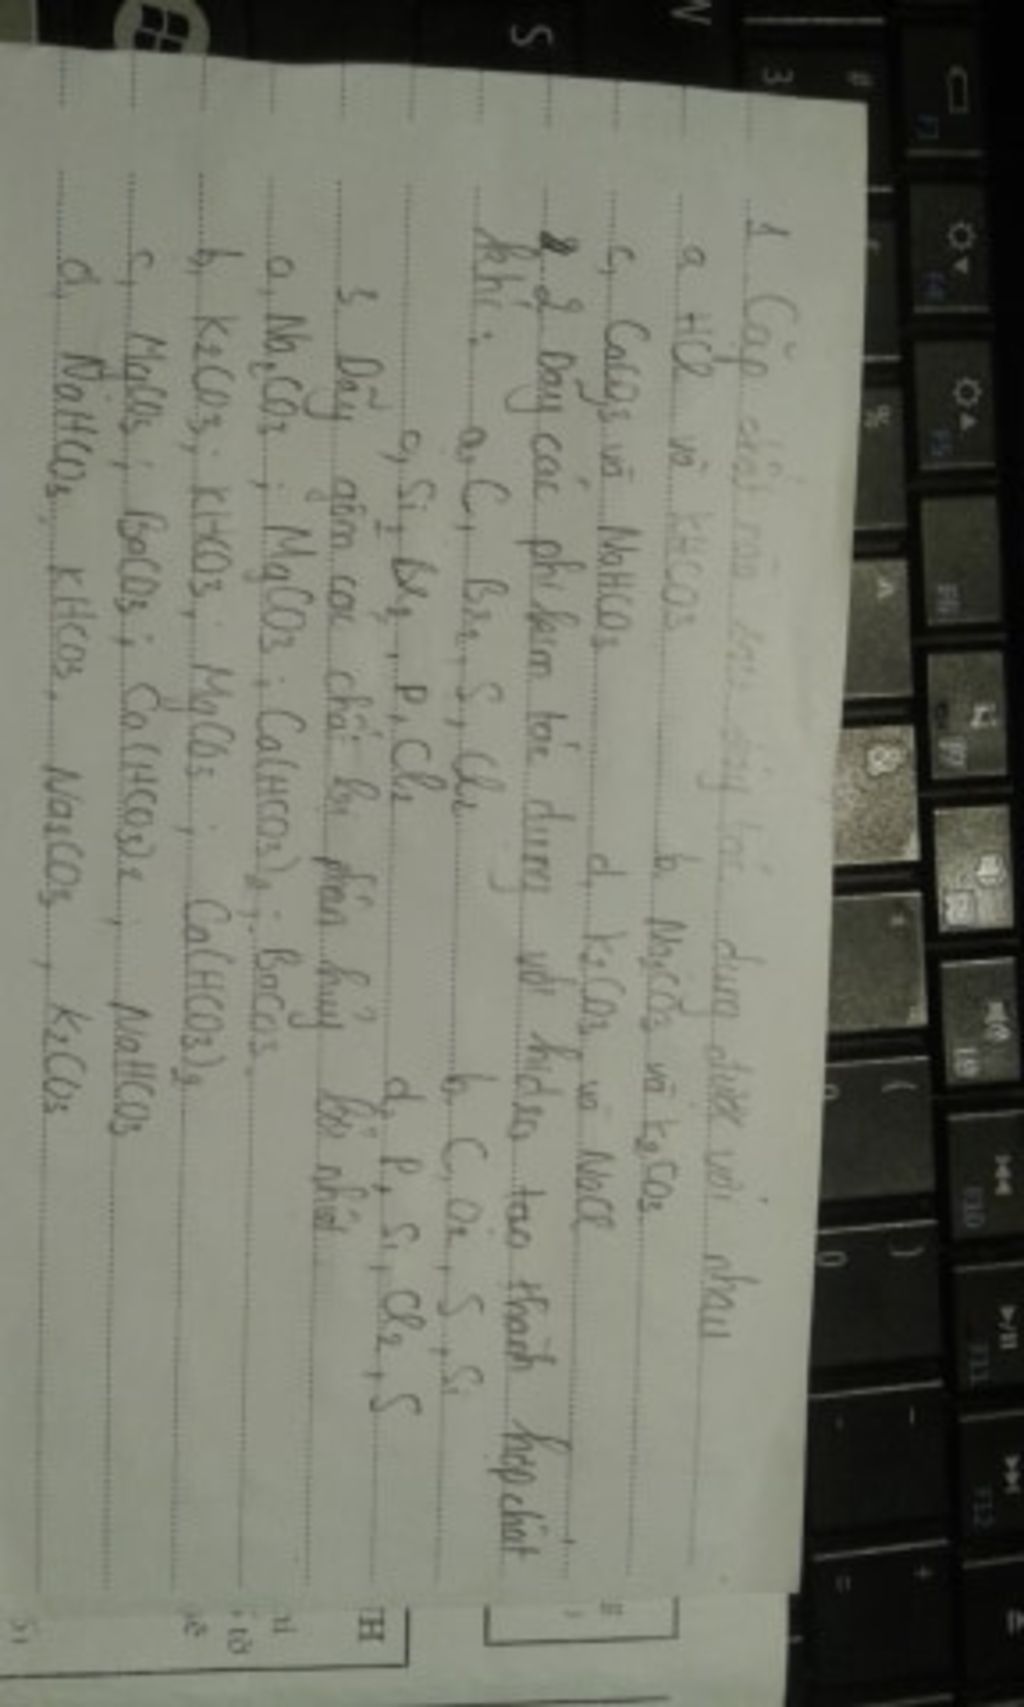 1 Cặp chất nào sau đây tác dụng được với nhau
a HCl và KHCO3 b, Na2CO3 và K2CO3
c, CaCO3 và NaHCO3 d, K2CO3 và NaCl
2 Dãy các phi kim tác dụng với hidro tạo thành hợp chất
khí: a, C, Br2, S, Cl2 b, C, O2, S, Si
c, Si, Br2, P, Cl2 d, P, Si, Cl2, S
3 Dãy gồm các chất bị phân hủy bởi nhiệt
a, Na2CO3; MgCO3; Ca(HCO3)2; BaCO3.
b, K2CO3; KHCO3; MgCO3; Ca(HCO3)2
c, MgCO3; BaCO3; Ca(HCO3)2; NaHCO3
d, NaHCO3, KHCO3, Na2CO3, K2CO3